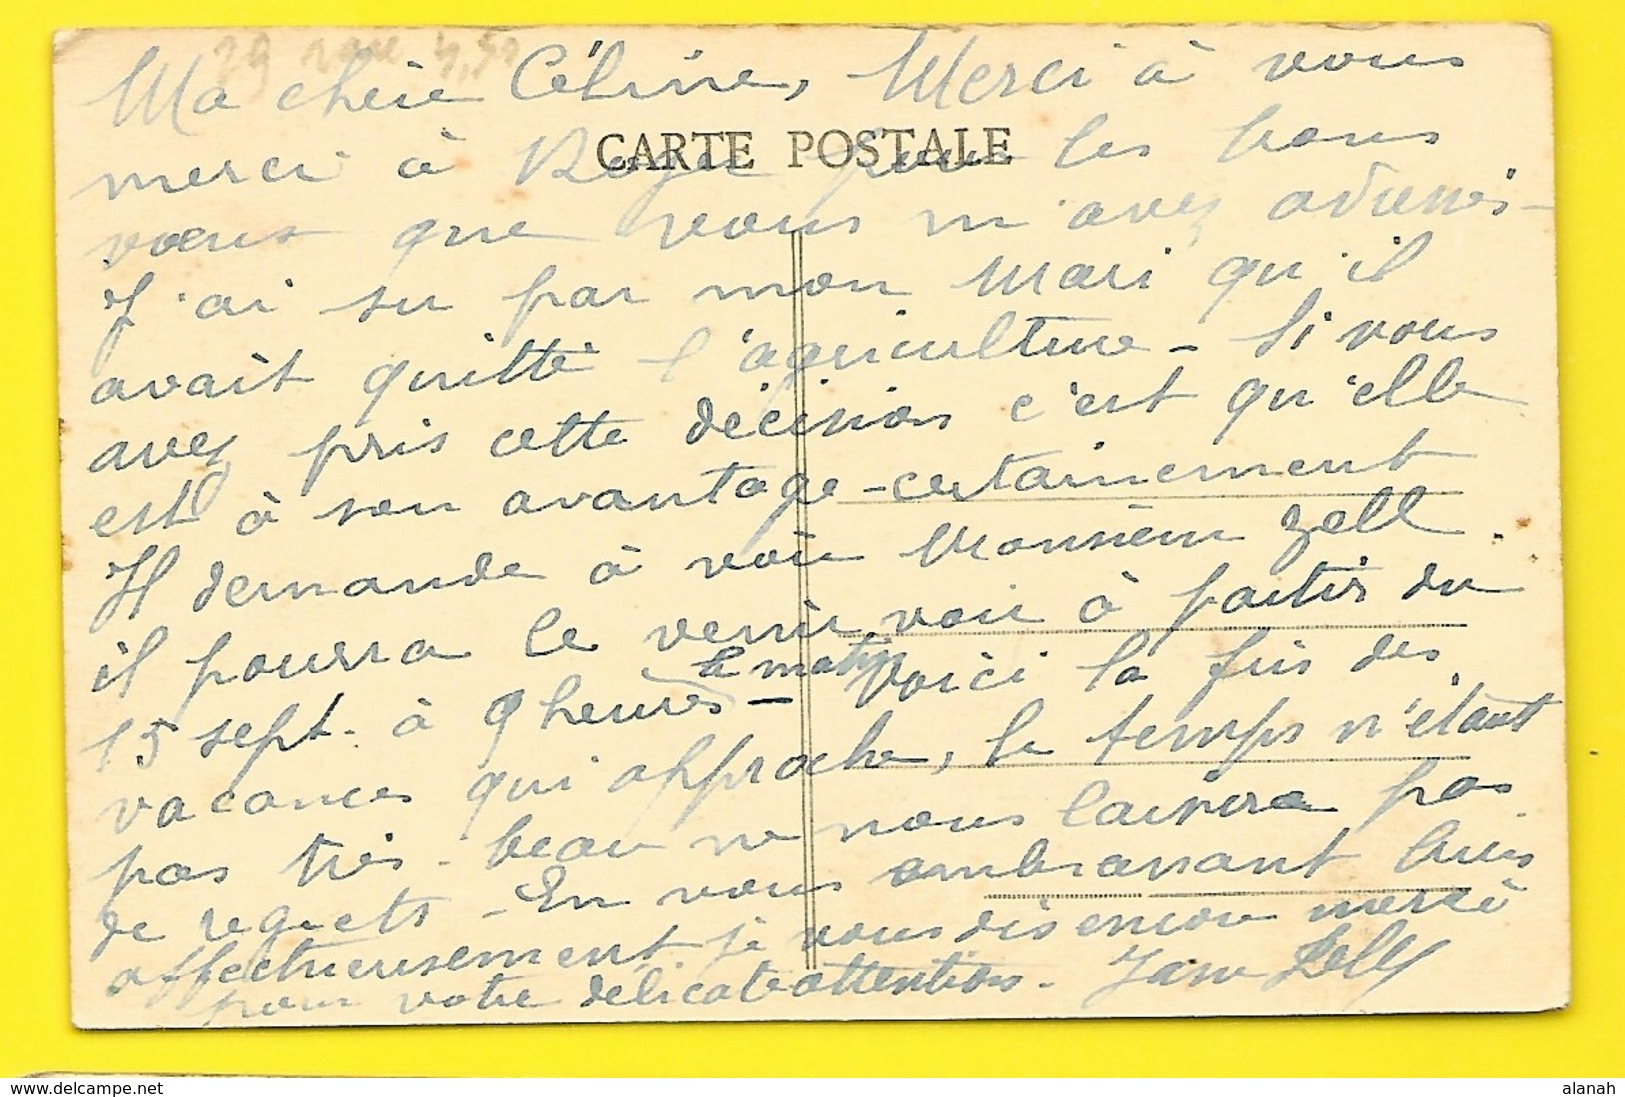 29 rare 4,50
Ma chère Céline, Merci à vous
CARTE POSTALE
merci à Roger pour les bons
voeux que vous m'avez adressés -
J'ai su par mon Mari qu'il
avait quitté l'agriculture - Si vous
avez pris cette décision c'est qu'elle
est à son avantage - certainement
Il demande à voir Monsieur Zell.
il pourra le venir voir à partir du
15 sept. à 9 heures - Voici la fin des
le matin
vacances qui approche, le temps n'étant
pas très beau ne nous laissera pas
de regrets - En vous embrassant bien
affectueusement je vous dis encore merci
pour votre délicate attention. Zell
www.delcampe.net
alanah